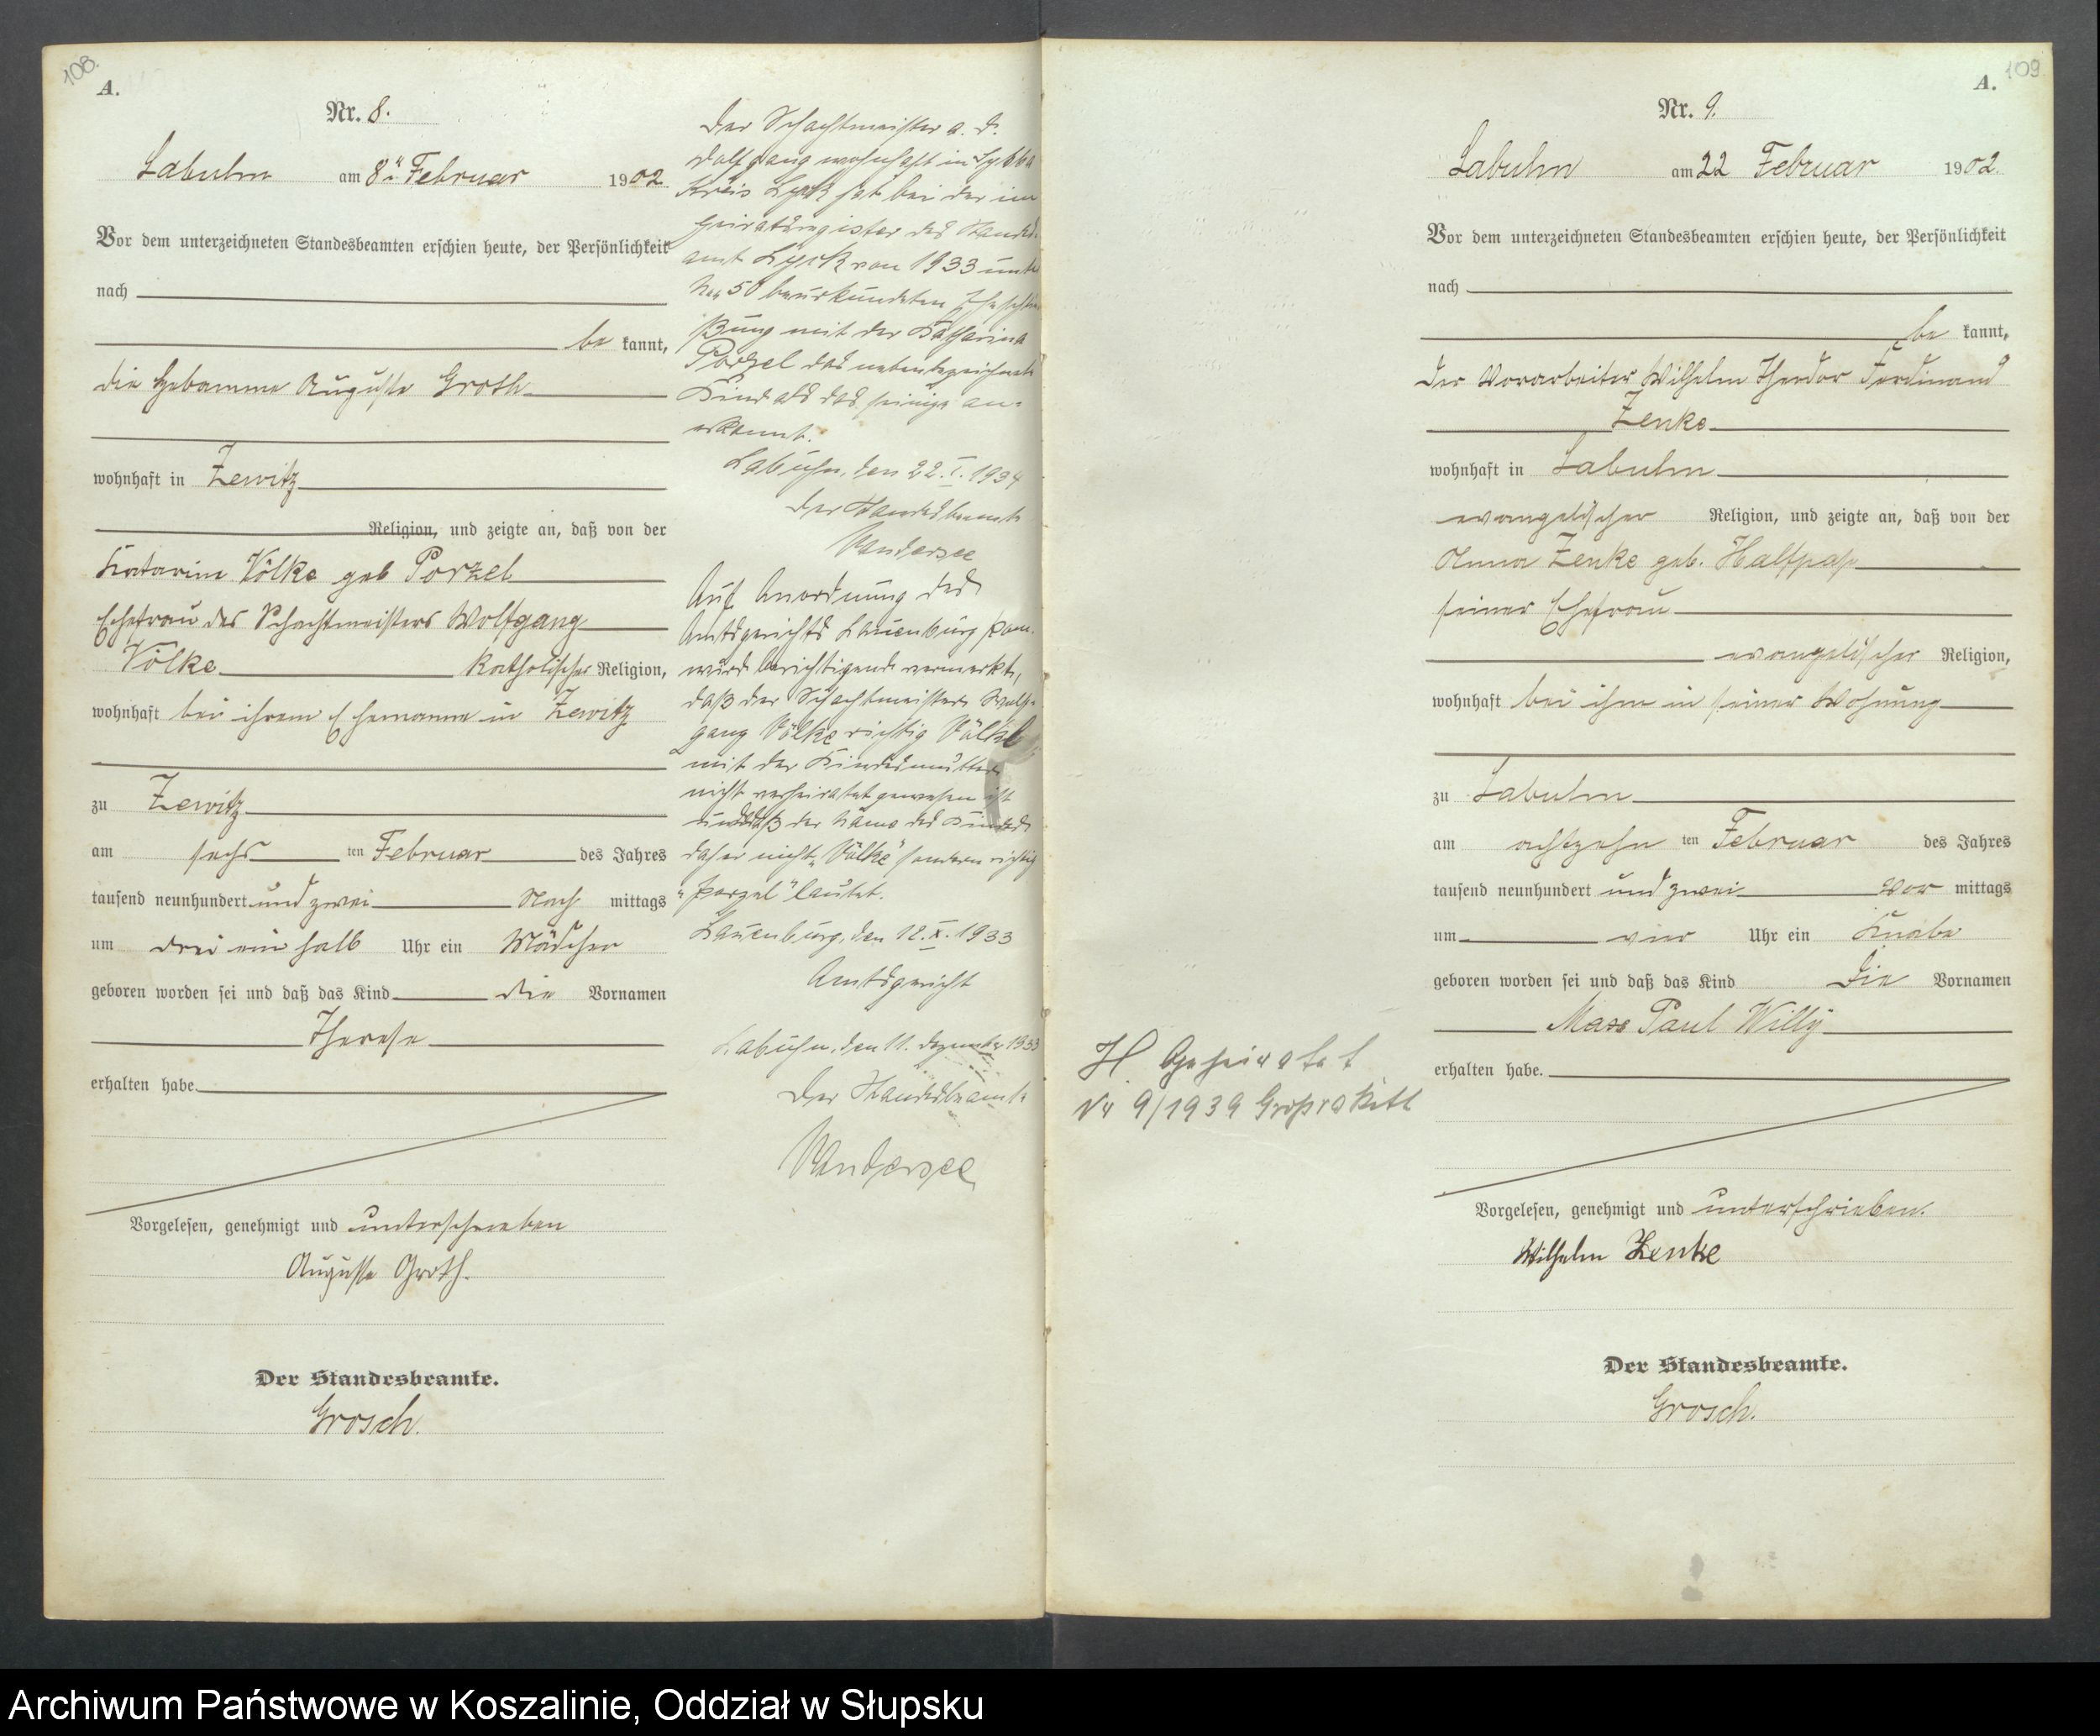 108.
A.
Nr. 8.
Labuhn am 8ten Februar 1902
Vor dem unterzeichneten Standesbeamten erschien heute, der Persönlichkeit
nach
be kannt,
die Hebamme Auguste Groth
wohnhaft in Zewitz
Religion, und zeigte an, daß von der
Katarina Völke geb Porzel
Ehefrau des Schachtmeisters Wolfgang
Völke katholischer Religion,
wohnhaft bei ihrem Ehemanne in Zewitz
zu Zewitz
am sechs ten Februar des Jahres
tausend neunhundert und zwei Nach mittags
um drei ein halb Uhr ein Mädchen
geboren worden sei und daß das Kind die Vornamen
Therese
erhalten habe.
Vorgelesen, genehmigt und unterschrieben
Auguste Groth.
Der Standesbeamte.
Grosch.
Der Schachtmeister a. D.
Wolfgang wohnhaft in
Kreis Lyck hat bei der im
Heiratsregister des Standes
amt Lyck von 1933 unter
No. 50 beurkundeten Eheschlie
ßung mit der Katharina
Porzel das nebenbezeichnete
Kind als das seinige an-
erkannt.
Labuhn, den 22. I. 1934
Der Standesbeamte
Vandersee
Auf Anordnung des
Amtsgerichts Lauenburg Pom.
wird berichtigend vermerkt,
daß der Schachtmeister Wolf-
gang Völke richtig Völkl
mit der Kindesmutter
nicht verheiratet gewesen ist
und daß der Name des Kindes
daher nicht „Völke" sondern richtig
"Porzel" lautet.
Lauenburg, den 12. X. 1933
Amtsgericht
Labuhn, den 11. Dezember 1933
Der Standesbeamte
Vandersee
109
A.
Nr. 9.
Labuhn am 22 Februar 1902.
Vor dem unterzeichneten Standesbeamten erschien heute, der Persönlichkeit
nach
be kannt,
der Vorarbeiter Wilhelm Theodor Ferdinand
Zenke
wohnhaft in Labuhn
evangelischer Religion, und zeigte an, daß von der
Anna Zenke geb. Halfpap
seiner Ehefrau
evangelischer Religion,
wohnhaft bei ihm in seiner Wohnung
zu Labuhn
am achtzehn ten Februar des Jahres
tausend neunhundert und zwei Vor mittags
um vier Uhr ein Knabe
geboren worden sei und daß das Kind die Vornamen
Max Paul Willy
erhalten habe.
H. Geheiratet
Nr 9/1939 Großrakitt
Vorgelesen, genehmigt und unterschrieben.
Wilhelm Zenke
Der Standesbeamte.
Grosch.
Archiwum Państwowe w Koszalinie, Oddział w Słupsku